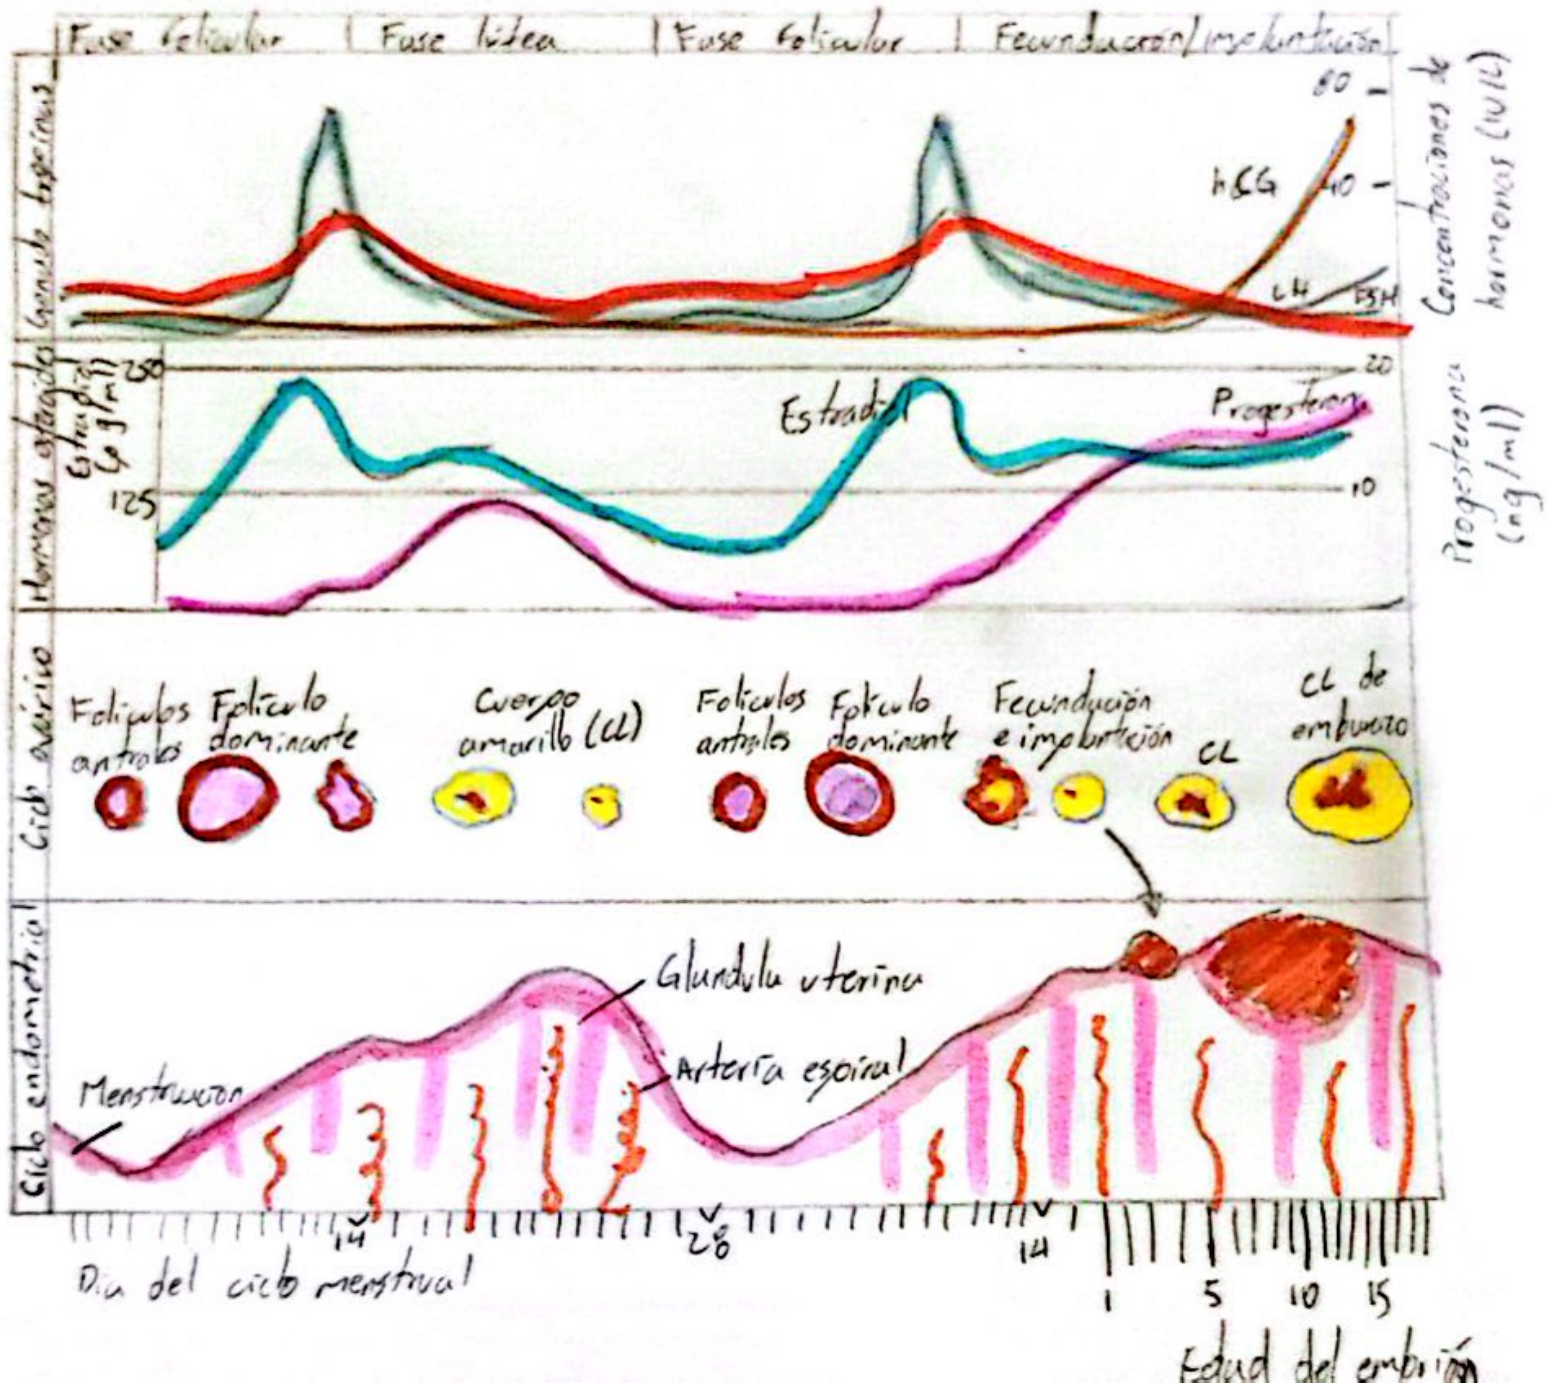 Fase folicular
Fase lútea
Fase folicular
Fecundación/implantación
80
40
hCG
LH
FSH
Concentraciones de
hormonas (IU/L)
Hormonas
Estradiol
(pg/ml)
250
125
Estradiol
Progesteron
20
10
Progesterona
(ng/ml)
Ciclo ovárico
Folículos
antrales
Folículo
dominante
Cuerpo
amarillo (CL)
Folículos
antrales
Folículo
dominante
Fecundación
e implantación
CL
CL de
embarazo
Ciclo endometrial
Menstruación
Glandula uterina
Arteria espiral
14
28
14
Dia del ciclo menstrual
1
5
10
15
Edad del embrión